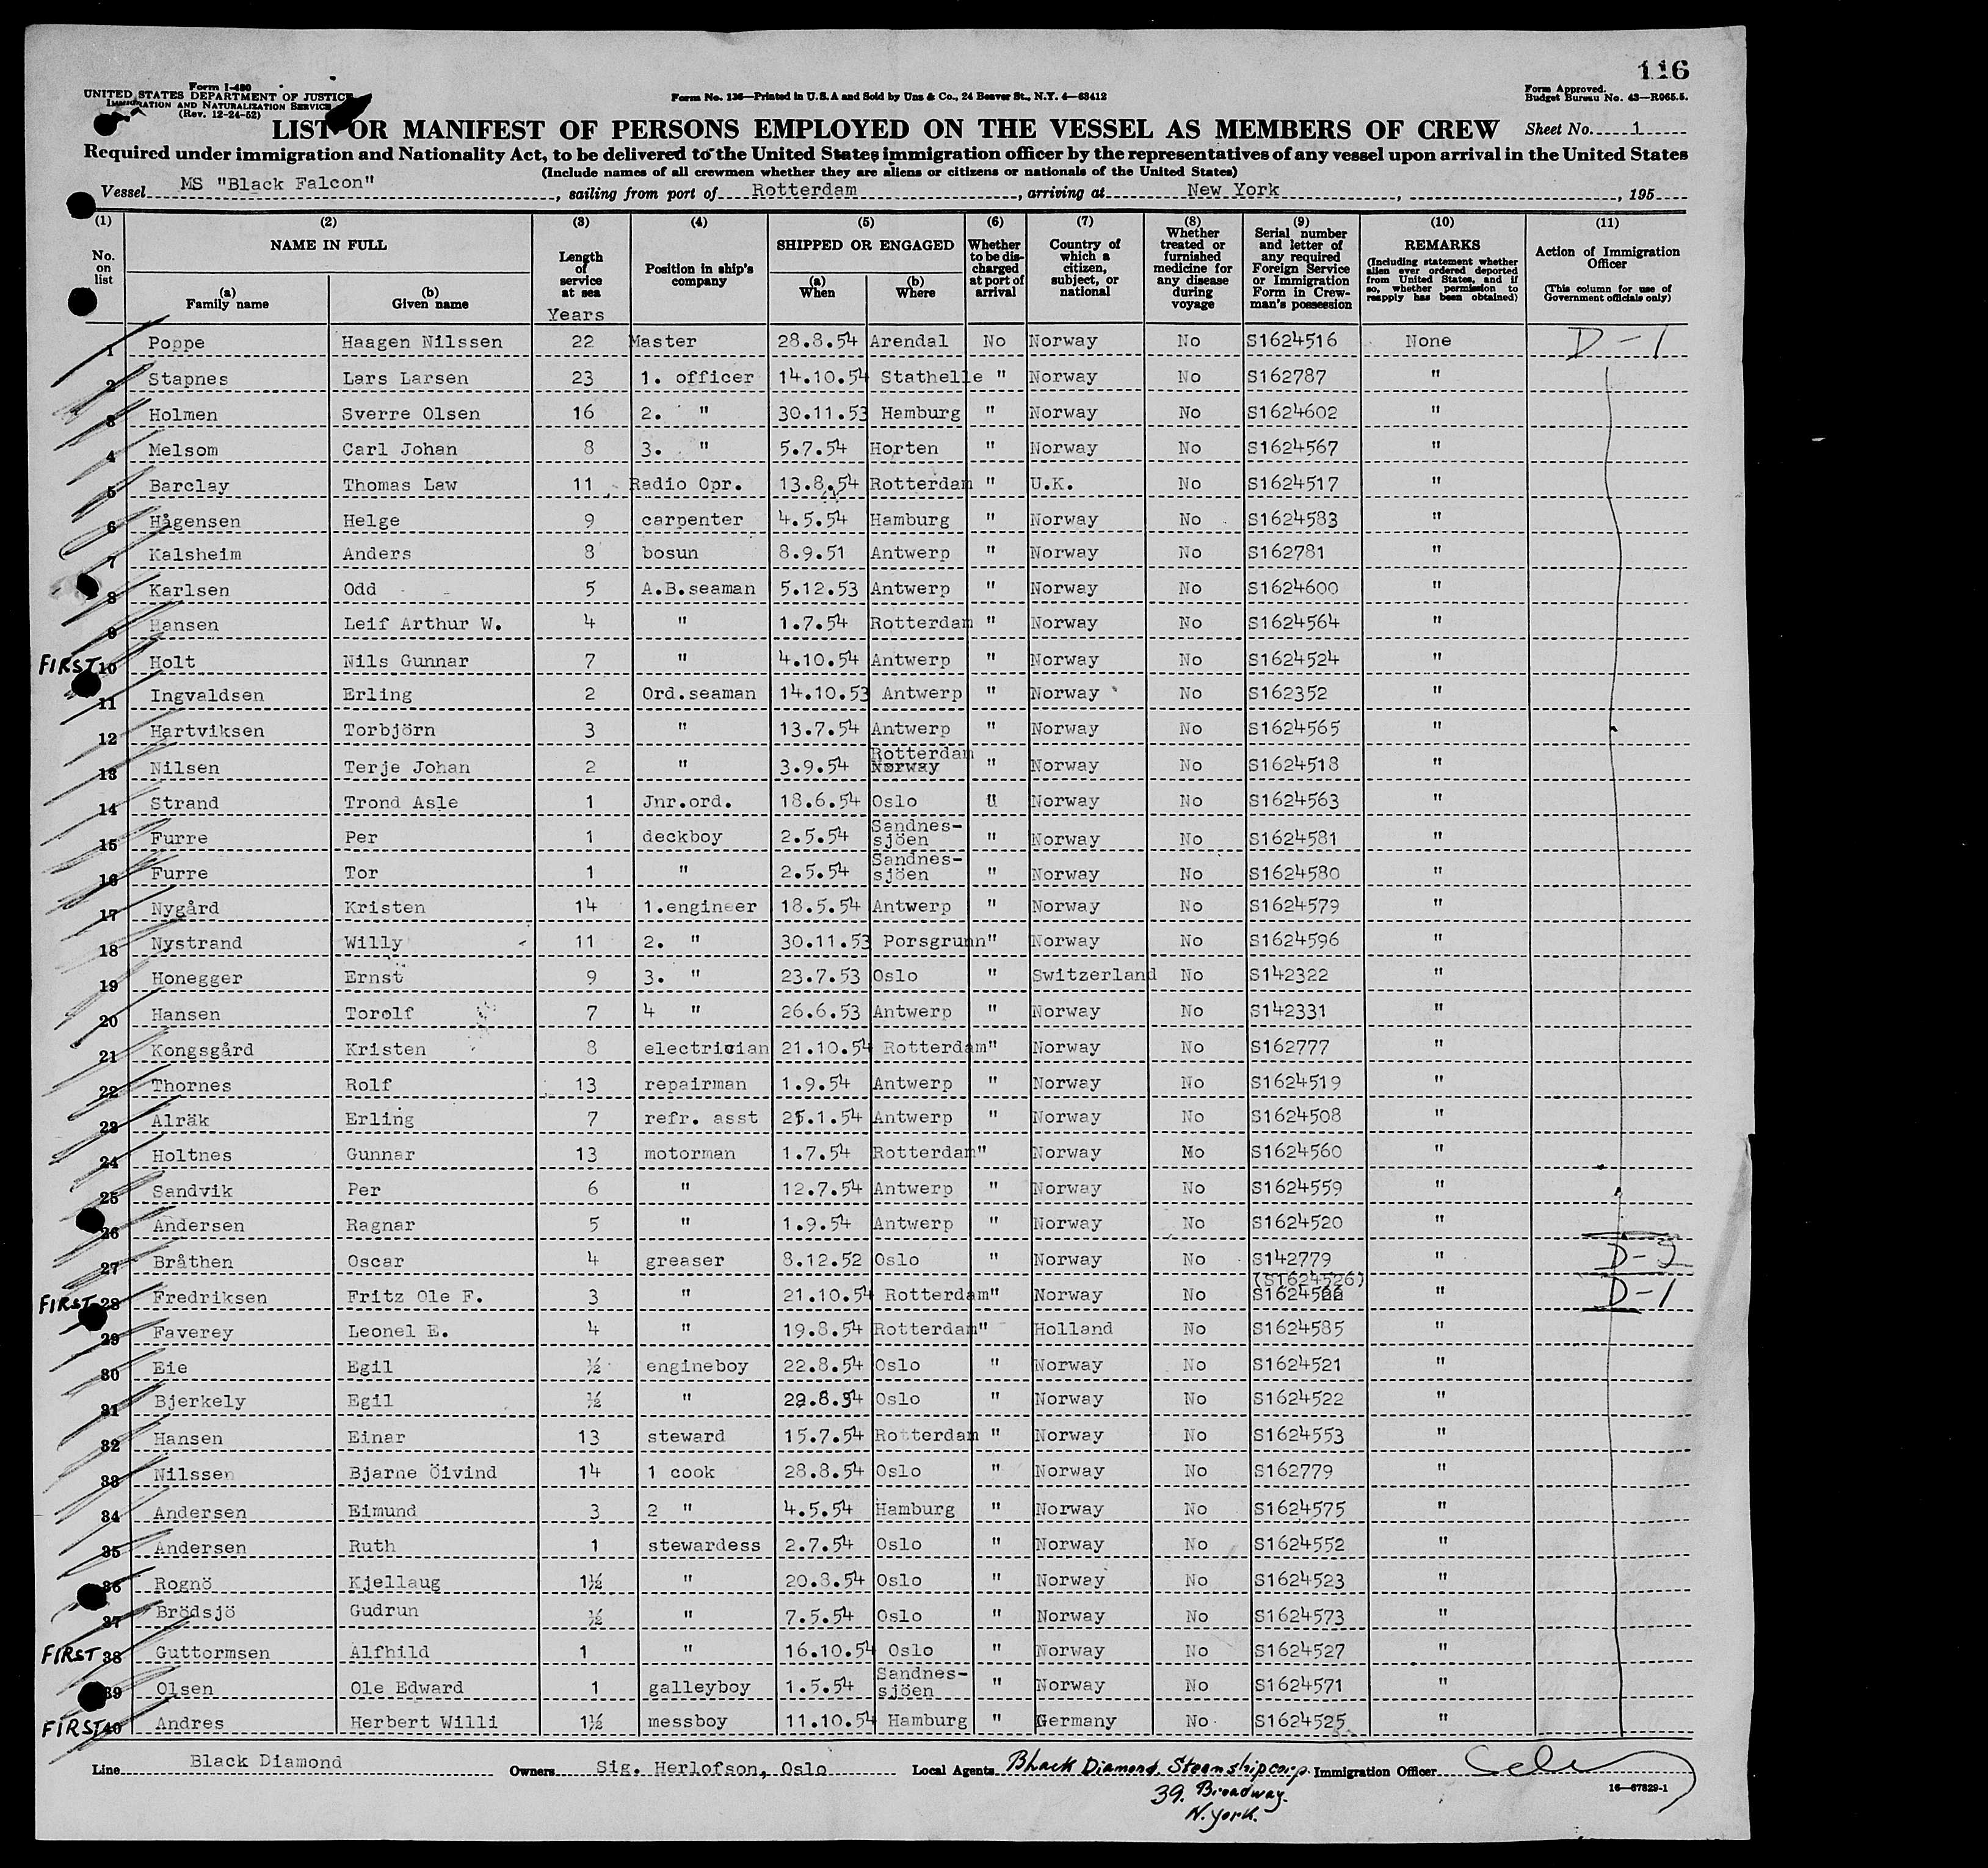 116
Form I-480
UNITED STATES DEPARTMENT OF JUSTICE
IMMIGRATION AND NATURALIZATION SERVICE
(Rev. 12-24-52)
Form No. 136—Printed in U.S.A and Sold by Unz & Co., 24 Beaver St., N.Y. 4—63412
Form Approved.
Budget Bureau No. 43—R065.5.
LIST OR MANIFEST OF PERSONS EMPLOYED ON THE VESSEL AS MEMBERS OF CREW
Sheet No. 1
Required under immigration and Nationality Act, to be delivered to the United States immigration officer by the representatives of any vessel upon arrival in the United States
(Include names of all crewmen whether they are aliens or citizens or nationals of the United States)
Vessel MS "Black Falcon", sailing from port of Rotterdam, arriving at New York, , 195
(1) No. on list
(2) NAME IN FULL
(a) Family name
(b) Given name
(3) Length of service at sea Years
(4) Position in ship's company
(5) SHIPPED OR ENGAGED
(a) When
(b) Where
(6) Whether to be discharged at port of arrival
(7) Country of which a citizen, subject, or national
(8) Whether treated or furnished medicine for any disease during voyage
(9) Serial number and letter of any required Foreign Service or Immigration Form in Crewman's possession
(10) REMARKS (Including statement whether alien ever ordered deported from United States, and if so, whether permission to reapply has been obtained)
(11) Action of Immigration Officer (This column for use of Government officials only)
1 Poppe Haagen Nilssen 22 Master 28.8.54 Arendal No Norway No S1624516 None D-1
2 Stapnes Lars Larsen 23 1. officer 14.10.54 Stathelle " Norway No S162787 "
3 Holmen Sverre Olsen 16 2. " 30.11.53 Hamburg " Norway No S1624602 "
4 Melsom Carl Johan 8 3. " 5.7.54 Horten " Norway No S1624567 "
5 Barclay Thomas Law 11 Radio Opr. 13.8.54 Rotterdam " U.K. No S1624517 "
6 Hågensen Helge 9 carpenter 4.5.54 Hamburg " Norway No S1624583 "
7 Kalsheim Anders 8 bosun 8.9.51 Antwerp " Norway No S162781 "
8 Karlsen Odd 5 A.B.seaman 5.12.53 Antwerp " Norway No S1624600 "
9 Hansen Leif Arthur W. 4 " 1.7.54 Rotterdam " Norway No S1624564 "
FIRST 10 Holt Nils Gunnar 7 " 4.10.54 Antwerp " Norway No S1624524 "
11 Ingvaldsen Erling 2 Ord.seaman 14.10.53 Antwerp " Norway No S162352 "
12 Hartviksen Torbjörn 3 " 13.7.54 Antwerp " Norway No S1624565 "
13 Nilsen Terje Johan 2 " 3.9.54 Rotterdam Norway " Norway No S1624518 "
14 Strand Trond Asle 1 Jnr.ord. 18.6.54 Oslo " Norway No S1624563 "
15 Furre Per 1 deckboy 2.5.54 Sandnes-sjöen " Norway No S1624581 "
16 Furre Tor 1 " 2.5.54 Sandnes-sjöen " Norway No S1624580 "
17 Nygård Kristen 14 1.engineer 18.5.54 Antwerp " Norway No S1624579 "
18 Nystrand Willy 11 2. " 30.11.53 Porsgrunn " Norway No S1624596 "
19 Honegger Ernst 9 3. " 23.7.53 Oslo " Switzerland No S142322 "
20 Hansen Torolf 7 4 " 26.6.53 Antwerp " Norway No S142331 "
21 Kongsgård Kristen 8 electrician 21.10.54 Rotterdam " Norway No S162777 "
22 Thornes Rolf 13 repairman 1.9.54 Antwerp " Norway No S1624519 "
23 Alräk Erling 7 refr. asst Antwerp " Norway No S1624508 "
24 Holtnes Gunnar 13 motorman 1.7.54 Rotterdam " Norway No S1624560 "
25 Sandvik Per 6 " 12.7.54 Antwerp " Norway No S1624559 "
26 Andersen Ragnar 5 " 1.9.54 Antwerp " Norway No S1624520 "
27 Bråthen Oscar 4 greaser 8.12.52 Oslo " Norway No S142779 " D-2
FIRST 28 Fredriksen Fritz Ole F. 3 " 21.10.54 Rotterdam " Norway No (S1624526) " D-1
29 Faverey Leonel E. 4 " 19.8.54 Rotterdam " Holland No S1624585 "
30 Eie Egil ½ engineboy 22.8.54 Oslo " Norway No S1624521 "
31 Bjerkely Egil ½ " Oslo " Norway No S1624522 "
32 Hansen Einar 13 steward 15.7.54 Rotterdam " Norway No S1624553 "
33 Nilssen Bjarne Öivind 14 1 cook 28.8.54 Oslo " Norway No S162779 "
34 Andersen Eimund 3 2 " 4.5.54 Hamburg " Norway No S1624575 "
35 Andersen Ruth 1 stewardess 2.7.54 Oslo " Norway No S1624552 "
36 Rognö Kjellaug 1½ " 20.8.54 Oslo " Norway No S1624523 "
37 Brödsjö Gudrun ½ " 7.5.54 Oslo " Norway No S1624573 "
FIRST 38 Guttormsen Alfhild 1 " 16.10.54 Oslo " Norway No S1624527 "
39 Olsen Ole Edward 1 galleyboy 1.5.54 Sandnes-sjöen " Norway No S1624571 "
FIRST 40 Andres Herbert Willi 1½ messboy 11.10.54 Hamburg " Germany No S1624525 "
Line Black Diamond Owners Sig. Herlofson, Oslo Local Agents Black Diamond Steamship corp. Immigration Officer
39. Broadway.
N. York.
16—67829-1